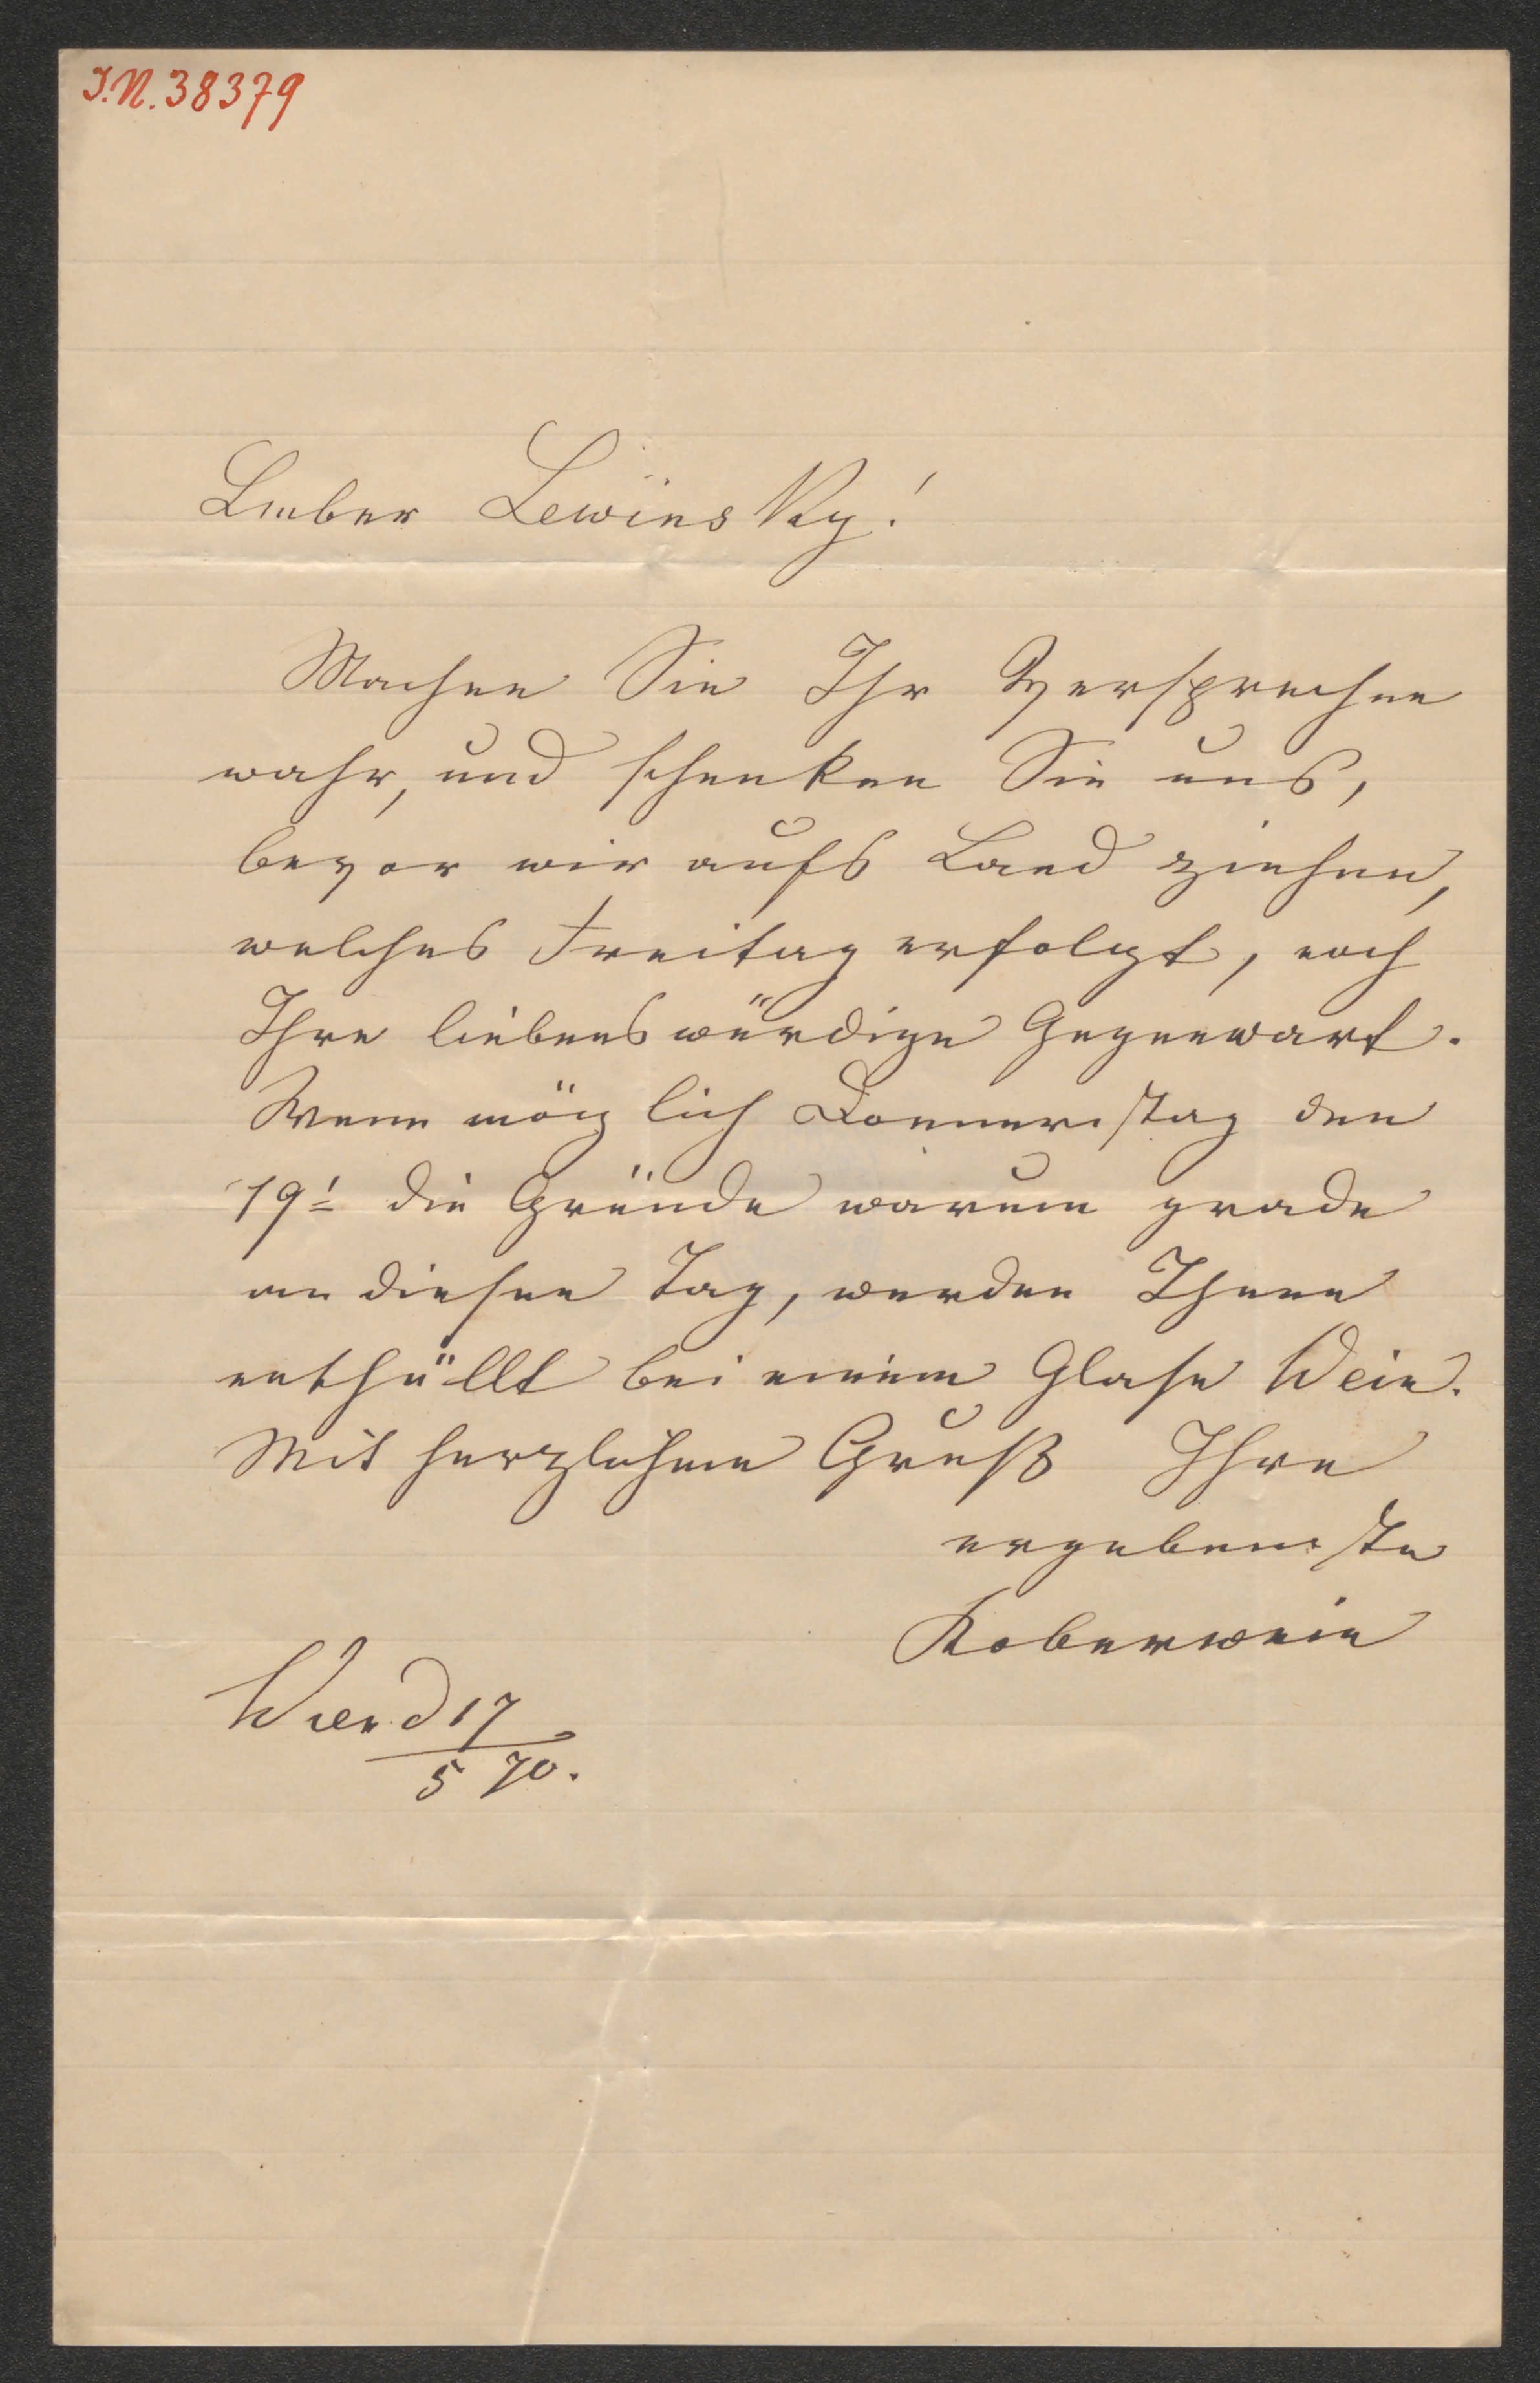 I.N. 38379
Lieber Lewinsky!
Machen Sie Ihr Versprechen
wahr, und schenken Sie uns,
bevor wir aufs Land ziehen,
welches Freitag erfolgt, noch
Ihre liebenswürdige Gegenwart.
Wenn möglich Donnerstag den
19t die Gründe warum grade
an diesen Tag, werden Ihnen
enthüllt bei einem Glase Wein.
Mit herzlichem Gruß Ihre
ergebenste
Koberwein
Wien d 17
5 70.